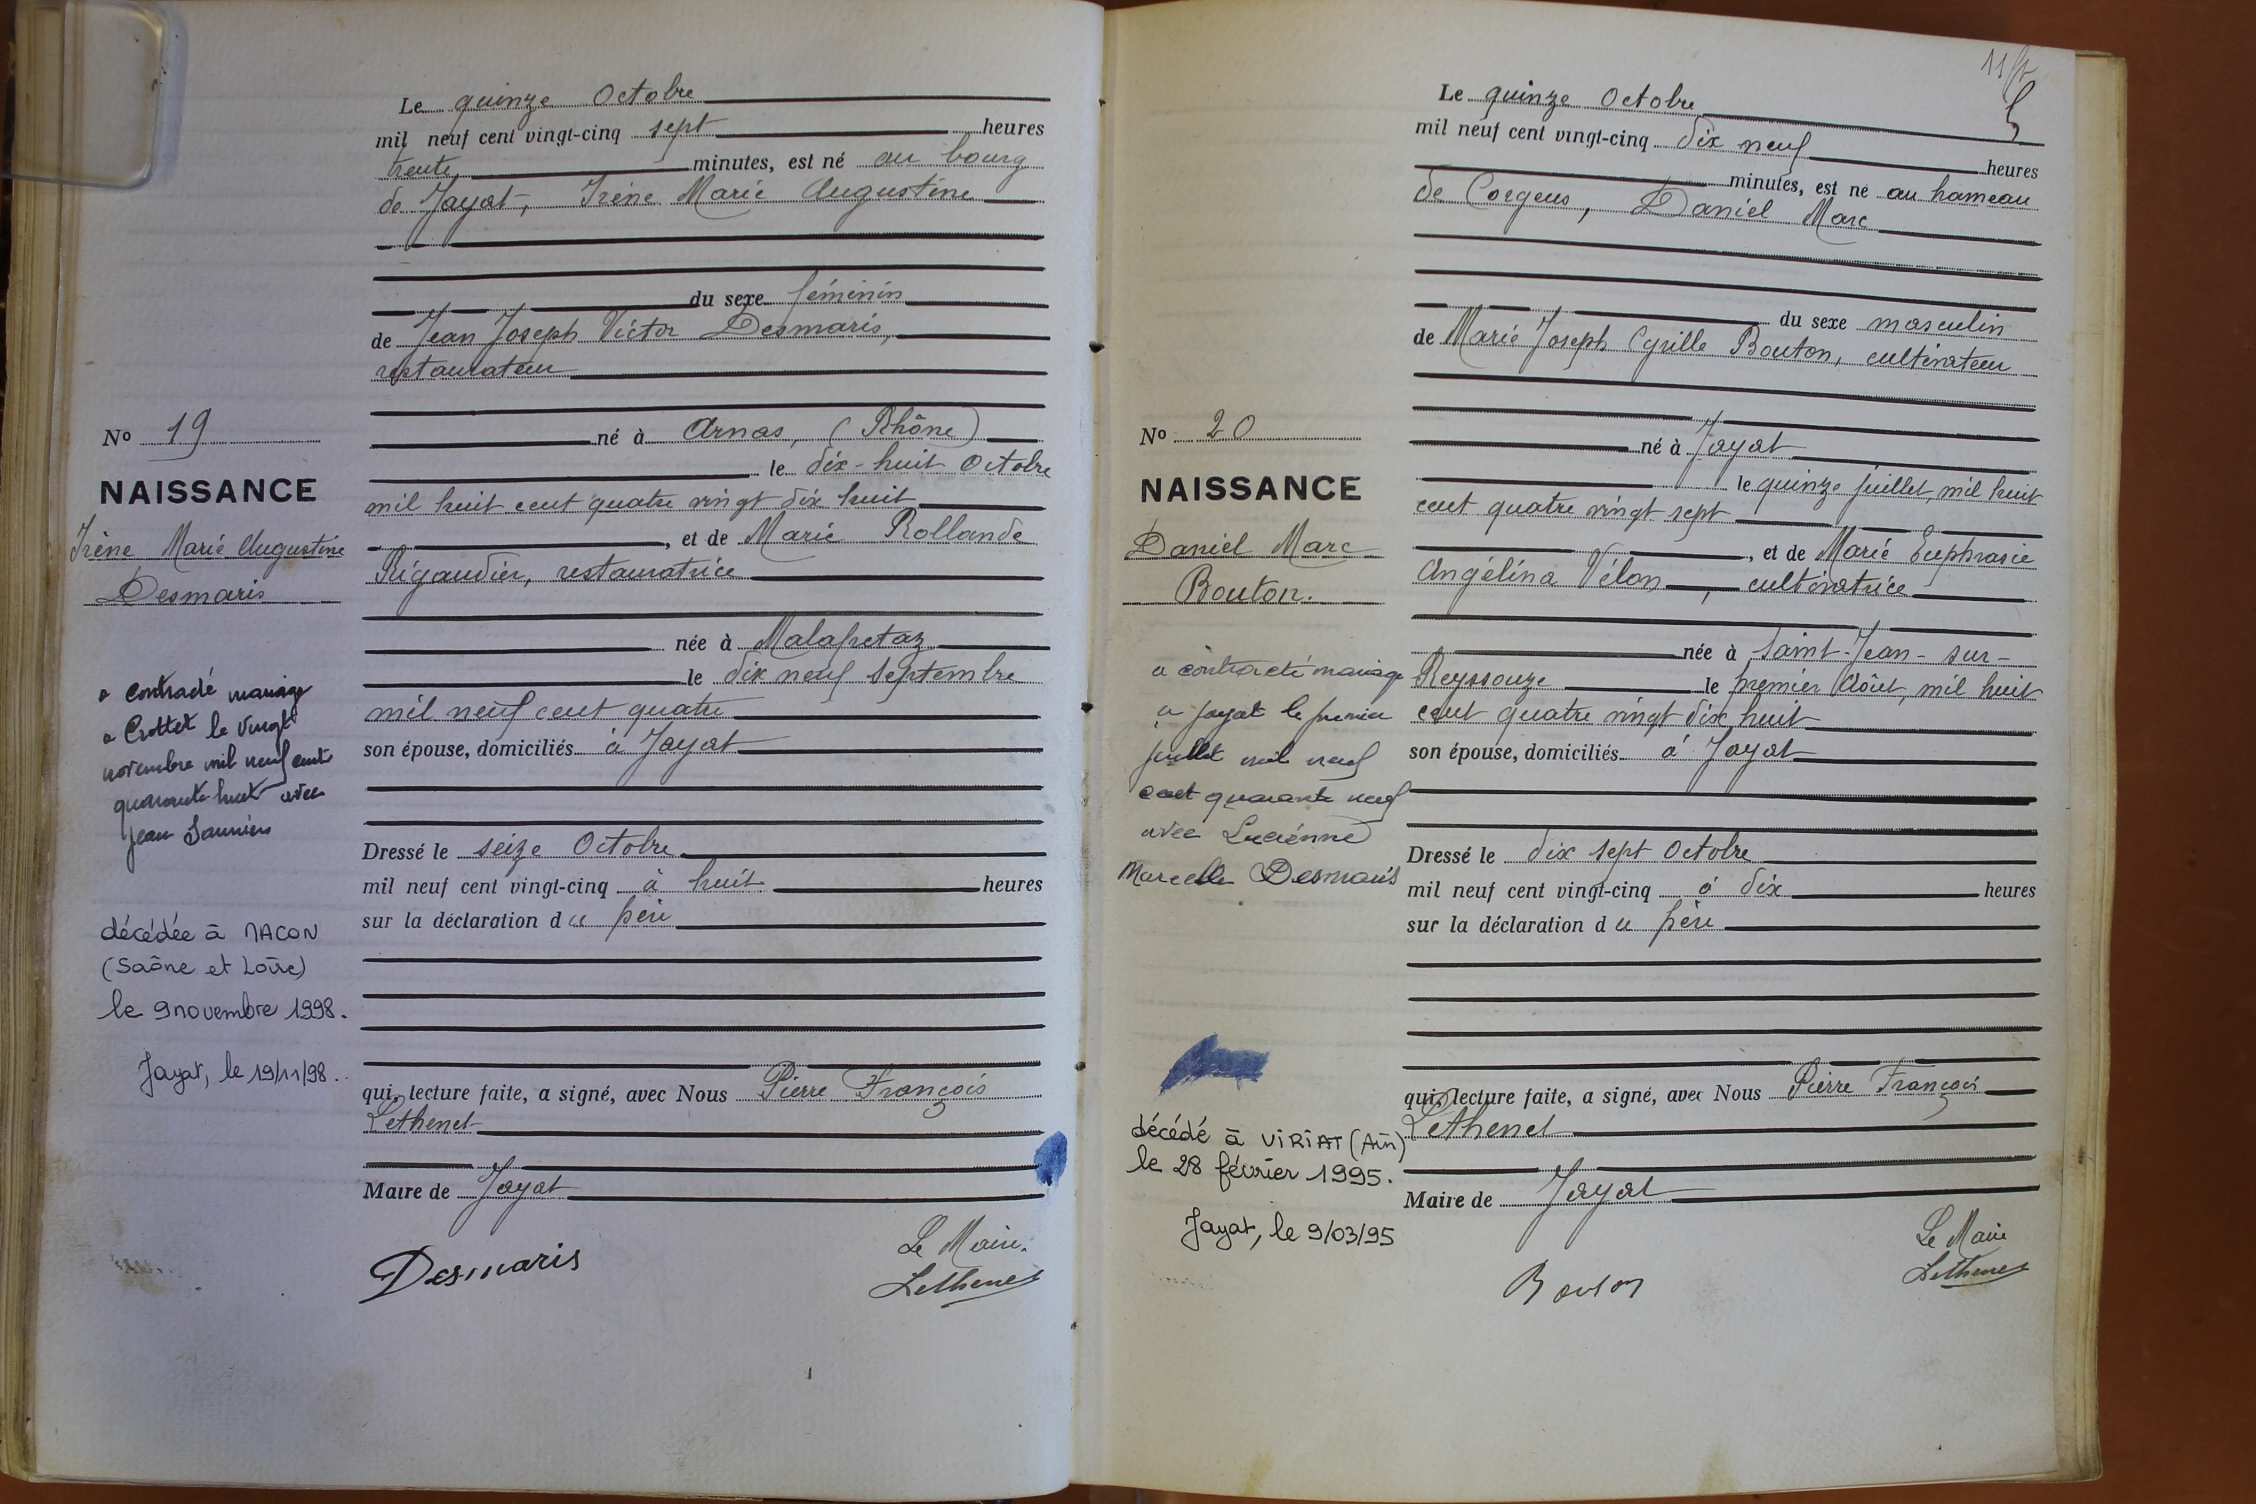 Le quinze Octobre
mil neuf cent vingt-cinq sept heures
trente minutes, est né au bourg
de Jayat, Irène Marie Augustine
du sexe féminin
de Jean Joseph Victor Desmaris,
restaurateur
né à Arnas, (Rhône)
le dix-huit Octobre
mil huit cent quatre vingt dix huit
, et de Marie Rollande
Rigaudier, restauratrice
née à Malafretaz
le dix neuf Septembre
mil neuf cent quatre
son épouse, domiciliés à Jayat
Dressé le seize Octobre
mil neuf cent vingt-cinq à huit heures
sur la déclaration du père
qui, lecture faite, a signé, avec Nous Pierre François
Lethenet
Maire de Jayat
Desmaris
Le Maire.
Lethenet
No 19
NAISSANCE
Irène Marie Augustine
Desmaris
a contracté mariage
a Crottet le vingt
novembre mil neuf cent
quarante huit avec
Jean Saunier
décédée à MACON
(Saône et Loire)
le 9 novembre 1998.
Jayat, le 19/11/98.
Le quinze Octobre
mil neuf cent vingt-cinq dix neuf heures
minutes, est né au hameau
de Corgeus, Daniel Marc
du sexe masculin
de Marie Joseph Cyrille Bouton, cultivateur
né à Jayat
le quinze juillet mil huit
cent quatre vingt sept
, et de Marie Euphrasie
Angélina Vélon, cultivatrice
née à Saint-Jean-sur-
Reyssouze le premier Août, mil huit
cent quatre vingt dix huit
son épouse, domiciliés à Jayat
Dressé le dix sept Octobre
mil neuf cent vingt-cinq à dix heures
sur la déclaration du père
qui, lecture faite, a signé, avec Nous Pierre François
Lethenet
Maire de Jayat
Bouton
Le Maire
Lethenet
No 20
NAISSANCE
Daniel Marc
Bouton.
a contracté mariage
a Jayat le premier
juillet mil neuf
cent quarante neuf
avec Lucienne
Marcelle Desmaris
décédé à VIRIAT (Ain)
le 28 février 1995.
Jayat, le 9/03/95